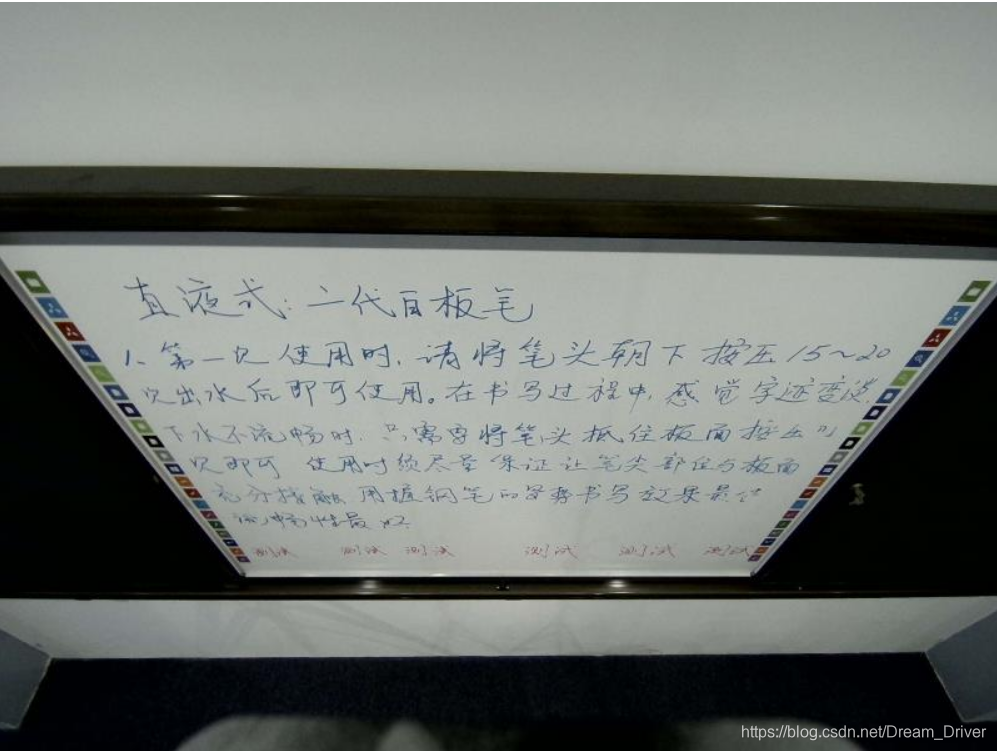 直液式:二代白板笔
1、第一次使用时,请将笔头朝下按压15~20
次出水后即可使用。在书写过程中,感觉字迹变淡,
下水不流畅时,只需要将笔头抵住板面按压
次即可 使用时须尽量保证让笔尖部位与板面
充分接触 用握钢笔的姿势书写效果最佳
流畅性最好
测试 测试 测试 测试 测试 测试
https://blog.csdn.net/Dream_Driver